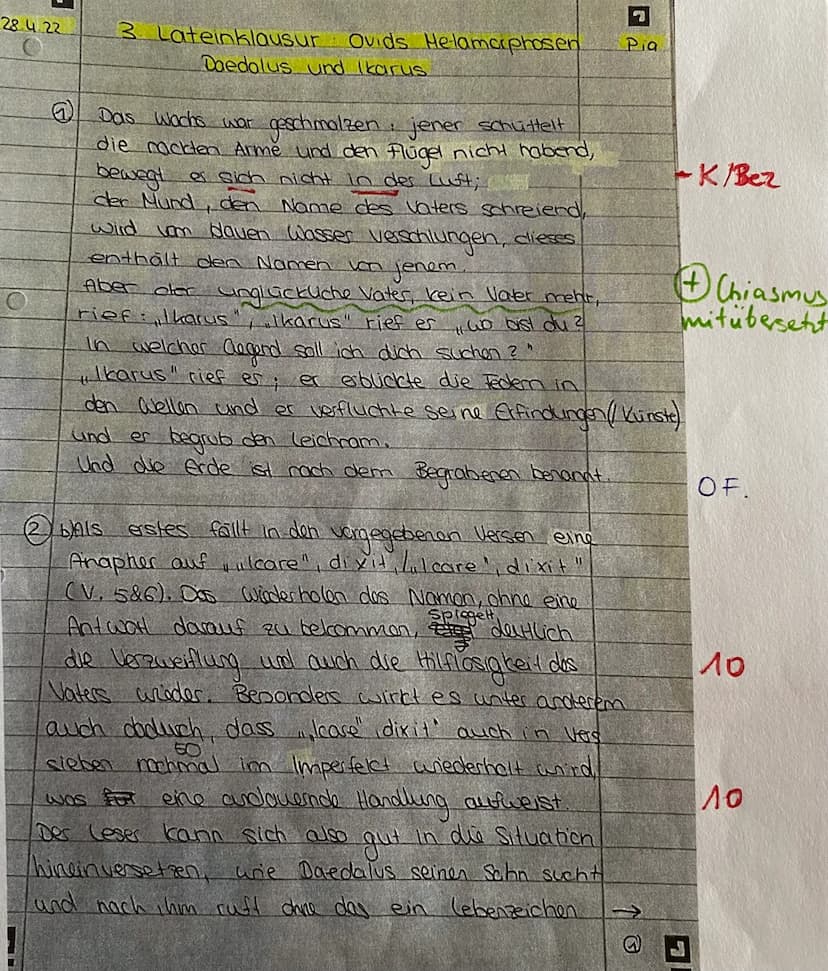 28.4.22
3. Lateinklausur: Ovids Metamorphosen
Pia
Daedalus und Ikarus
① Das Wachs war geschmolzen; jener schüttelt
die nackten Arme und den Flügel nicht habend,
bewegt er sich nicht in der Luft;
- K/Bez
der Mund, den Name des Vaters schreiend,
wird vom blauen Wasser verschlungen, dieses
enthält den Namen von jenem.
Aber der unglückliche Vater, kein Vater mehr,
⊕ Chiasmus
mitübersetzt
rief: „Ikarus", „Ikarus" rief er „wo bist du?
In welcher Gegend soll ich dich suchen?"
„Ikarus" rief er; er erblickte die Federn in
den Wellen und er verfluchte seine Erfindungen(/Künste)
und er begrub den Leichnam.
Und die Erde ist nach dem Begrabenen benannt.
0 F.
② b) Als erstes fällt in den vorgegebenen Versen eine
Anapher auf „„Icare", dixit,/„Icare", dixit"
(V. 5&6). Das Wiederholen des Namen, ohne eine
Antwort darauf zu bekommen, spiegelt deutlich
die Verzweiflung und auch die Hilflosigkeit des
10
Vaters wieder. Besonders wirkt es unter anderem
auch dadurch, dass „„Icare" dixit" auch in Vers
sieben nochmal im Imperfekt wiederholt wird,
was eine andauernde Handlung aufweist.
10
Der Leser kann sich also gut in die Situation
hineinversetzen, wie Daedalus seinen Sohn sucht
und nach ihm ruft ohne das ein Lebenzeichen →
①